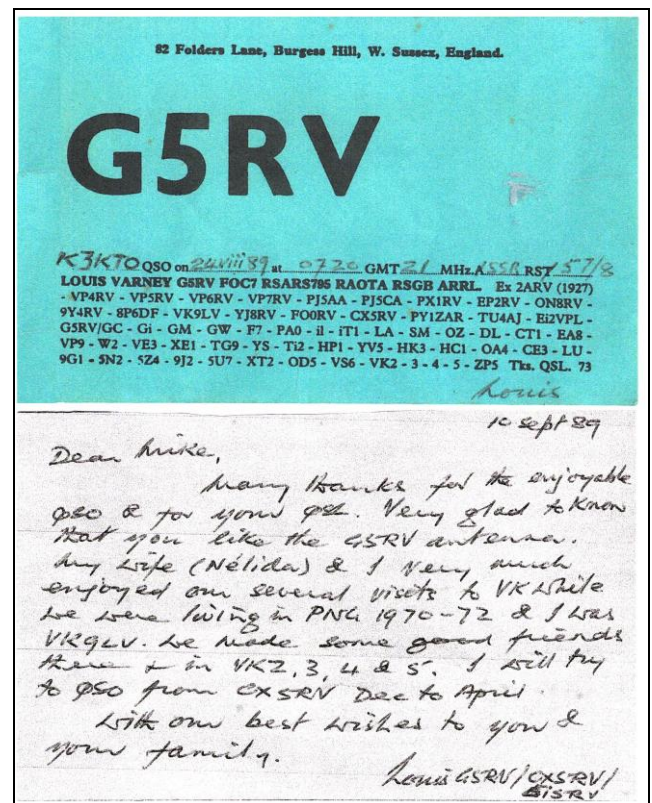 82 Folders Lane, Burgess Hill, W. Sussex, England.
G5RV
K3KTO QSO on 24 viii 89 at 0720 GMT 21 MHz. SSB RST 57/8
LOUIS VARNEY G5RV FOC7 RSARS795 RAOTA RSGB ARRL. Ex 2ARV (1927)
- VP4RV - VP5RV - VP6RV - VP7RV - PJ5AA - PJ5CA - PX1RV - EP2RV - ON8RV -
9Y4RV - 8P6DF - VK9LV - YJ8RV - FO0RV - CX5RV - PY1ZAR - TU4AJ - Ei2VPL -
G5RV/GC - Gi - GM - GW - F7 - PA0 - il - iT1 - LA - SM - OZ - DL - CT1 - EA8 -
VP9 - W2 - VE3 - XE1 - TG9 - YS - Ti2 - HP1 - YV5 - HK3 - HC1 - OA4 - CE3 - LU -
9G1 - 5N2 - 5Z4 - 9J2 - 5U7 - XT2 - OD5 - VS6 - VK2 - 3 - 4 - 5 - ZP5 Tks. QSL. 73
Louis
10 sept 89
Dear Mike,
Many thanks for the enjoyable
QSO & for your QSL. Very glad to know
that you like the G5RV antenna.
My wife (Nélida) & I very much
enjoyed our several visits to VK while
we were living in PNG 1970-72 & I was
VK9LV. We made some good friends
there & in VK2, 3, 4 & 5. I will try
to QSO from CX5RV Dec to April.
With our best wishes to you &
your family.
Louis G5RV/CX5RV/
EI5RV